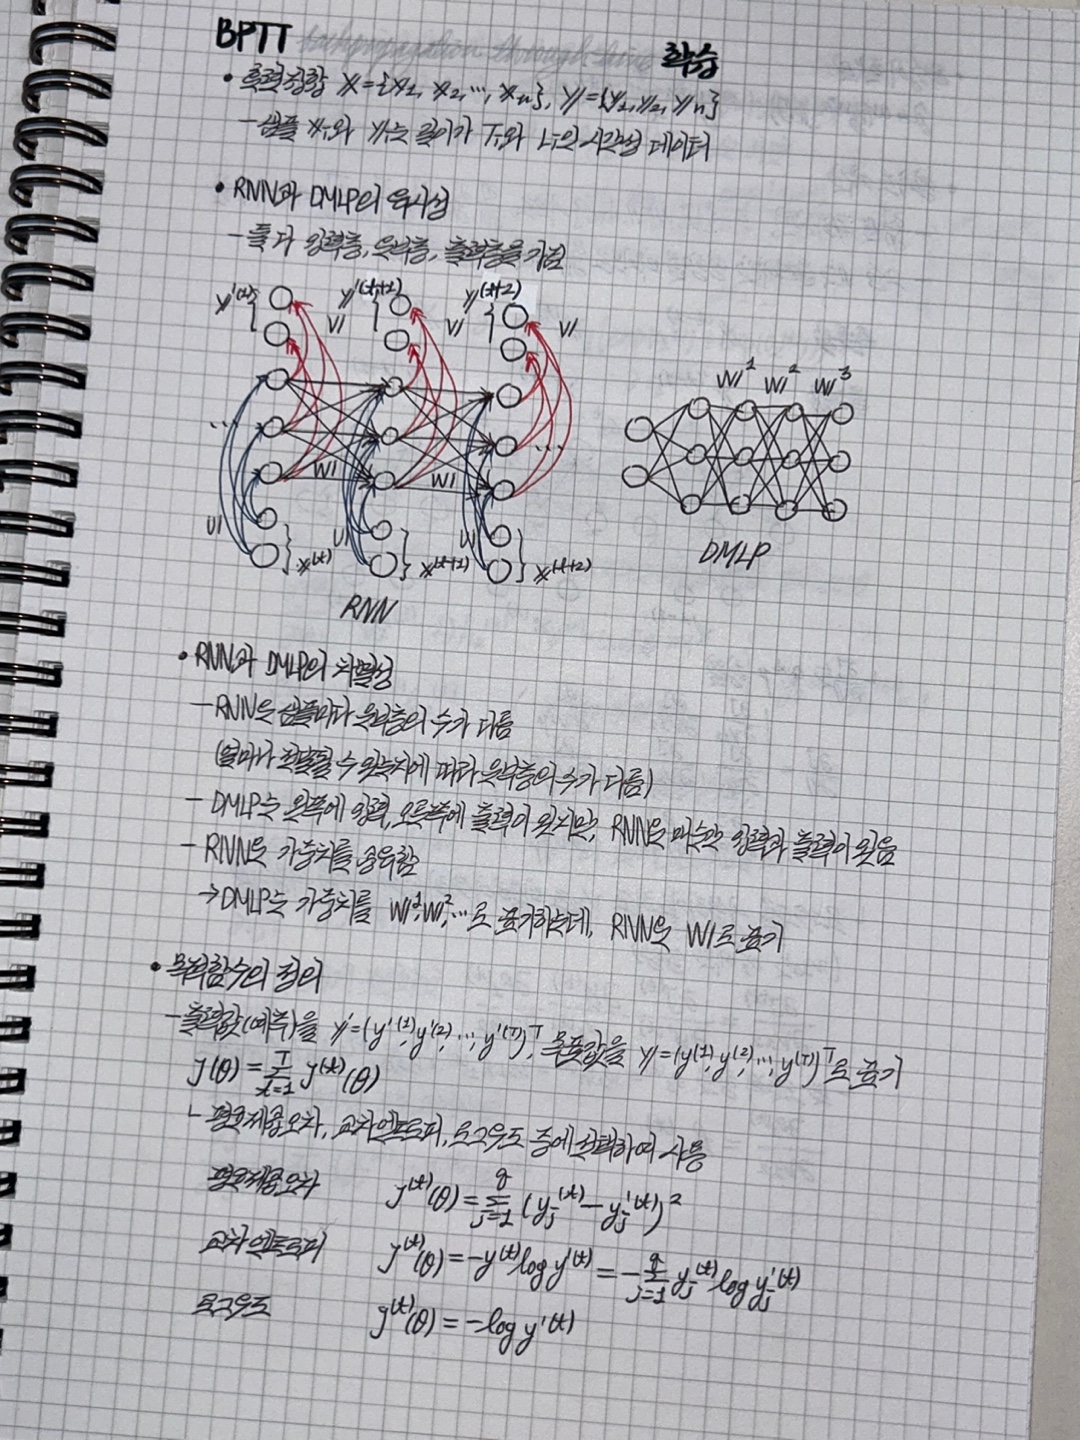 BPTT backpropagation through time 학습
• 훈련집합 X={x1, x2, ..., xn}, Y={y1, y2, yn}
- 샘플 xi와 yi는 길이가 Ti와 Li인 시간성 데이터
• RNN과 DMLP의 유사성
- 둘 다 입력층, 은닉층, 출력층을 가짐
y'(t) y'(t+1) y'(t+2)
V V V
W¹ W² W³
... W W ...
U U U
x(t) x(t+1) x(t+2)
DMLP
RNN
• RNN과 DMLP의 차별성
- RNN은 샘플마다 은닉층의 수가 다름
(얼마나 전달될 수 있는지에 따라 은닉층의 수가 다름)
- DMLP는 왼쪽에 입력, 오른쪽에 출력이 있지만, RNN은 매순간 입력과 출력이 있음
- RNN은 가중치를 공유함
→ DMLP는 가중치를 W¹, W², ... 로 표기하는데, RNN은 W로 표기
• 목적함수의 정의
- 출력값(예측)을 y'=(y'(1), y'(2), ..., y'(T))ᵀ, 목푯값을 y=(y(1), y(2), ..., y(T))ᵀ로 표기
J(θ) = Σ_{t=1}^{T} J(t)(θ)
ㄴ 평균제곱오차, 교차엔트로피, 로그우도 중에 선택하여 사용
평균제곱오차 J(t)(θ) = Σ_{j=1}^{q} (yj(t) - yj'(t))²
교차엔트로피 J(t)(θ) = -y(t) log y'(t) = -Σ_{j=1}^{q} yj(t) log yj'(t)
로그우도 J(t)(θ) = -log y'(t)